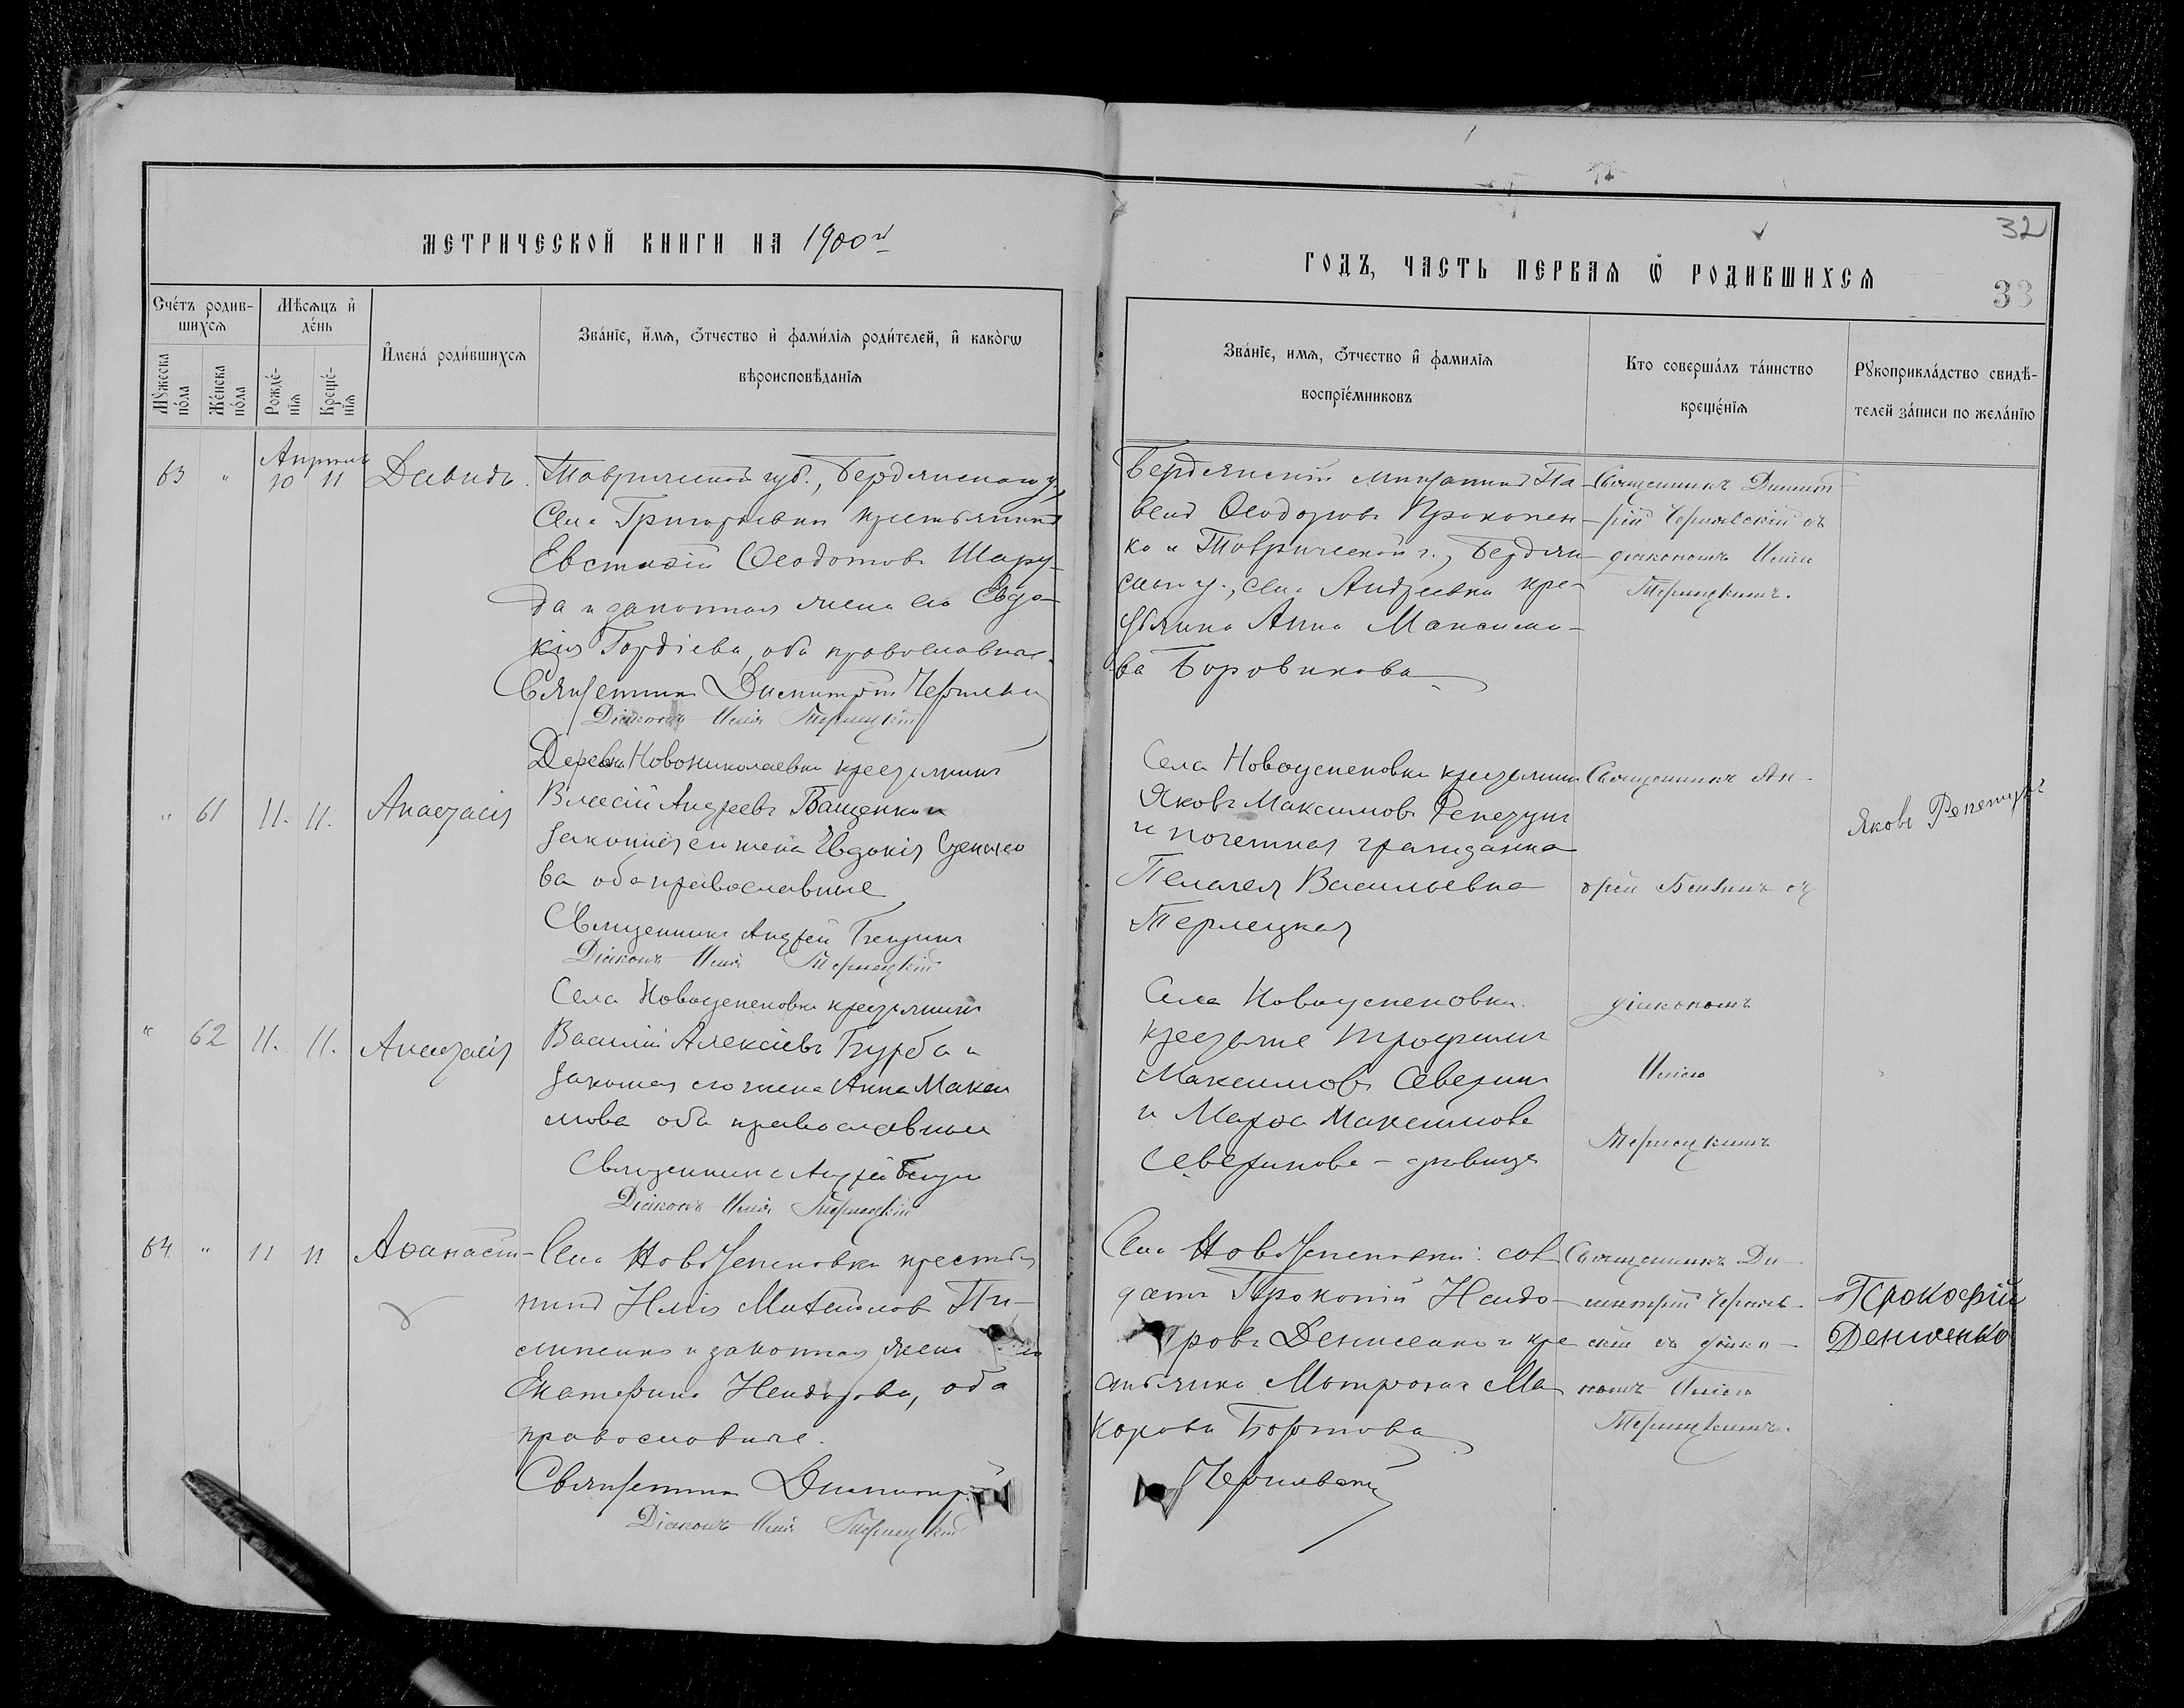 32
МЕТРИЧЕСКОЙ КНИГИ НА 1900й
ГОДЪ, ЧАСТЬ ПЕРВАЯ Ѿ РОДИВШИХСЯ
33
Счетъ родив-
шихся
Мѣсяцъ и
день
Мужеска
пола
Женска
пола
Рожде-
нія
Креще-
нія
Имена родившихся
Званіе, имя, отчество и фамилія родителей, и какогѡ
вѣроисповѣданія
Званіе, имя, отчество и фамилія
воспріемниковъ
Кто совершалъ таинство
крещенія
Рукоприкладство свидѣ-
телей записи по желанію
63 " Апрѣль 10 11 Давидъ.
Таврической губ., Бердянскаго у.
Села Григорьевки крестьянинъ
Евстафій Ѳеодотовъ Шару-
да и законная жена его Евдо-
кія Гордіева, оба православные.
Священникъ Димитрій
Діаконъ Илія Терлецкій
Бердянскій мѣщанинъ Па-
велъ Ѳеодоровъ Прокопен-
ко и Таврической г., Бердян
скаго у., села Андреевки кре-
Анна Максимо-
ва Боровикова
Священникъ Димит
рій Чернявскій съ
діакономъ Иліею
Терлецкимъ.
" 61 11. 11. Анастасія
Деревни Новониколаевки крестьянинъ
Андреевъ Бащенко и
законная его жена Евдокія
ва оба православные
Священникъ Андрей
Діаконъ Илія Терлецкій
Села Новоуспеновки крестьянинъ
Яковъ Максимовъ Репетунъ
и почетная гражданка
Пелагея Васильевна
Терлецкая
Священникъ Ан-
дрей съ
Яковъ
" 62 11. 11. Анастасія
Села Новоуспеновки крестьянинъ
Василій Алексіевъ Бурба и
законная его жена Анна Макси
мова оба православные
Священникъ Андрей
Діаконъ Илія Терлецкій
Села Новоуспеновки
крестьяне Трофимъ
Максимовъ Северинъ
и Марѳа Максимова
Северинова - вдовица
діакономъ
Иліею
Терлецкимъ
64 " 11 11 Аѳанасій
Села НовоУспеновки крестья
нинъ Илія Пи-
сменко и законная жена его
Екатерина Исидорова, оба
православные.
Священникъ Димитрій
Чернявскій
Діаконъ Илія Терлецкій
Села НовоУспеновки: сол
датъ Прокопій Исидо-
ровъ Денисенко и кре
стьянка Матрона Ма
карова Бортова
Священникъ Ди-
митрій Чернявс-
кій съ діако-
номъ Иліею
Терлецкимъ.
Прокофій
Денисенко